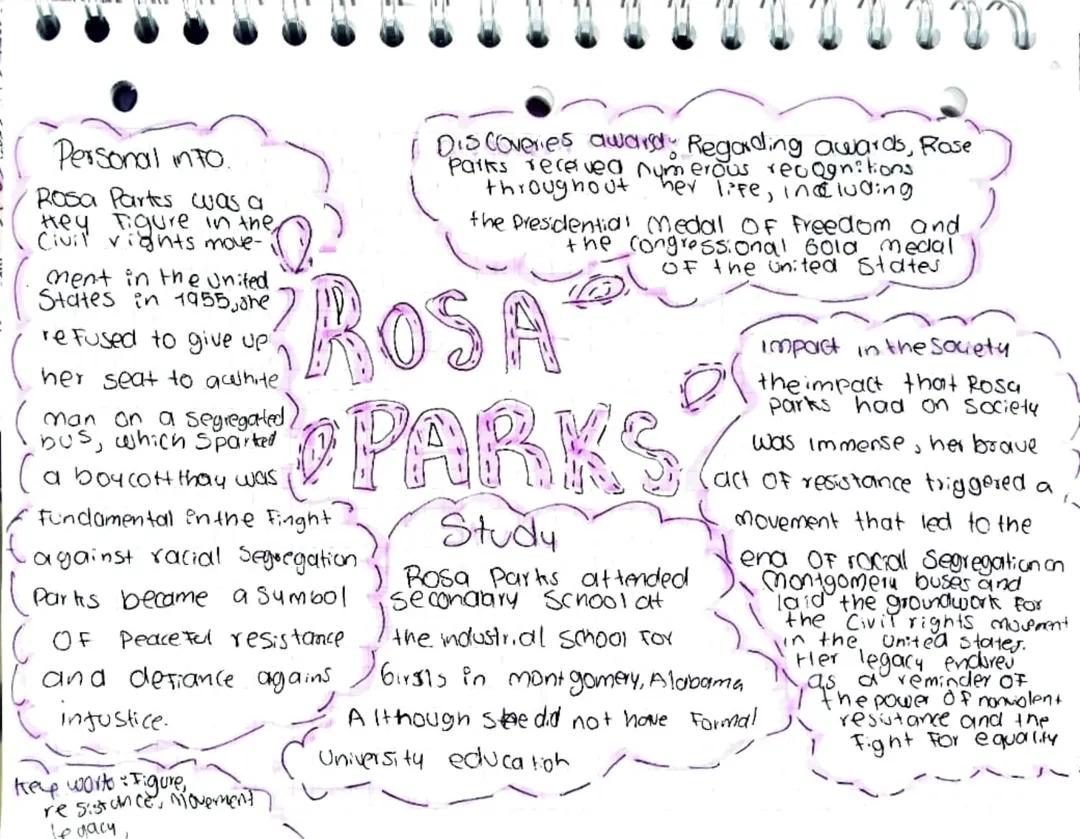 Personal info.
Rosa Parks was a
key figure in the
civil rights move-
ment in the united
States in 1955, she
refused to give up
her seat to a white
man on a segregated
bus, which sparked
a boycott thay was
fundamental in the finght
against racial segregation
Parks became a symbol
of peaceful resistance
and defiance agains
injustice.
Discoveries award: Regarding awards, Rose
Parks received numerous recognitions
throughout her life, including
the Presidential Medal of Freedom and
the Congressional Gold medal
of the United States
ROSA
PARKS
Study
Rosa Parks attended
secondary school at
the industrial school for
Girsls in montgomery, Alabama
Although she did not have formal
University education
impact in the Society
the impact that Rosa
Parks had on society
was immense, her brave
act of resistance triggered a
movement that led to the
end of racial segregation on
Montgomery buses and
laid the groundwork for
the Civil rights movement
in the United States.
Her legacy endures
as a reminder of
the power of nonviolent
resistance and the
fight for equality
work: Figure,
resistance, Movement
legacy,